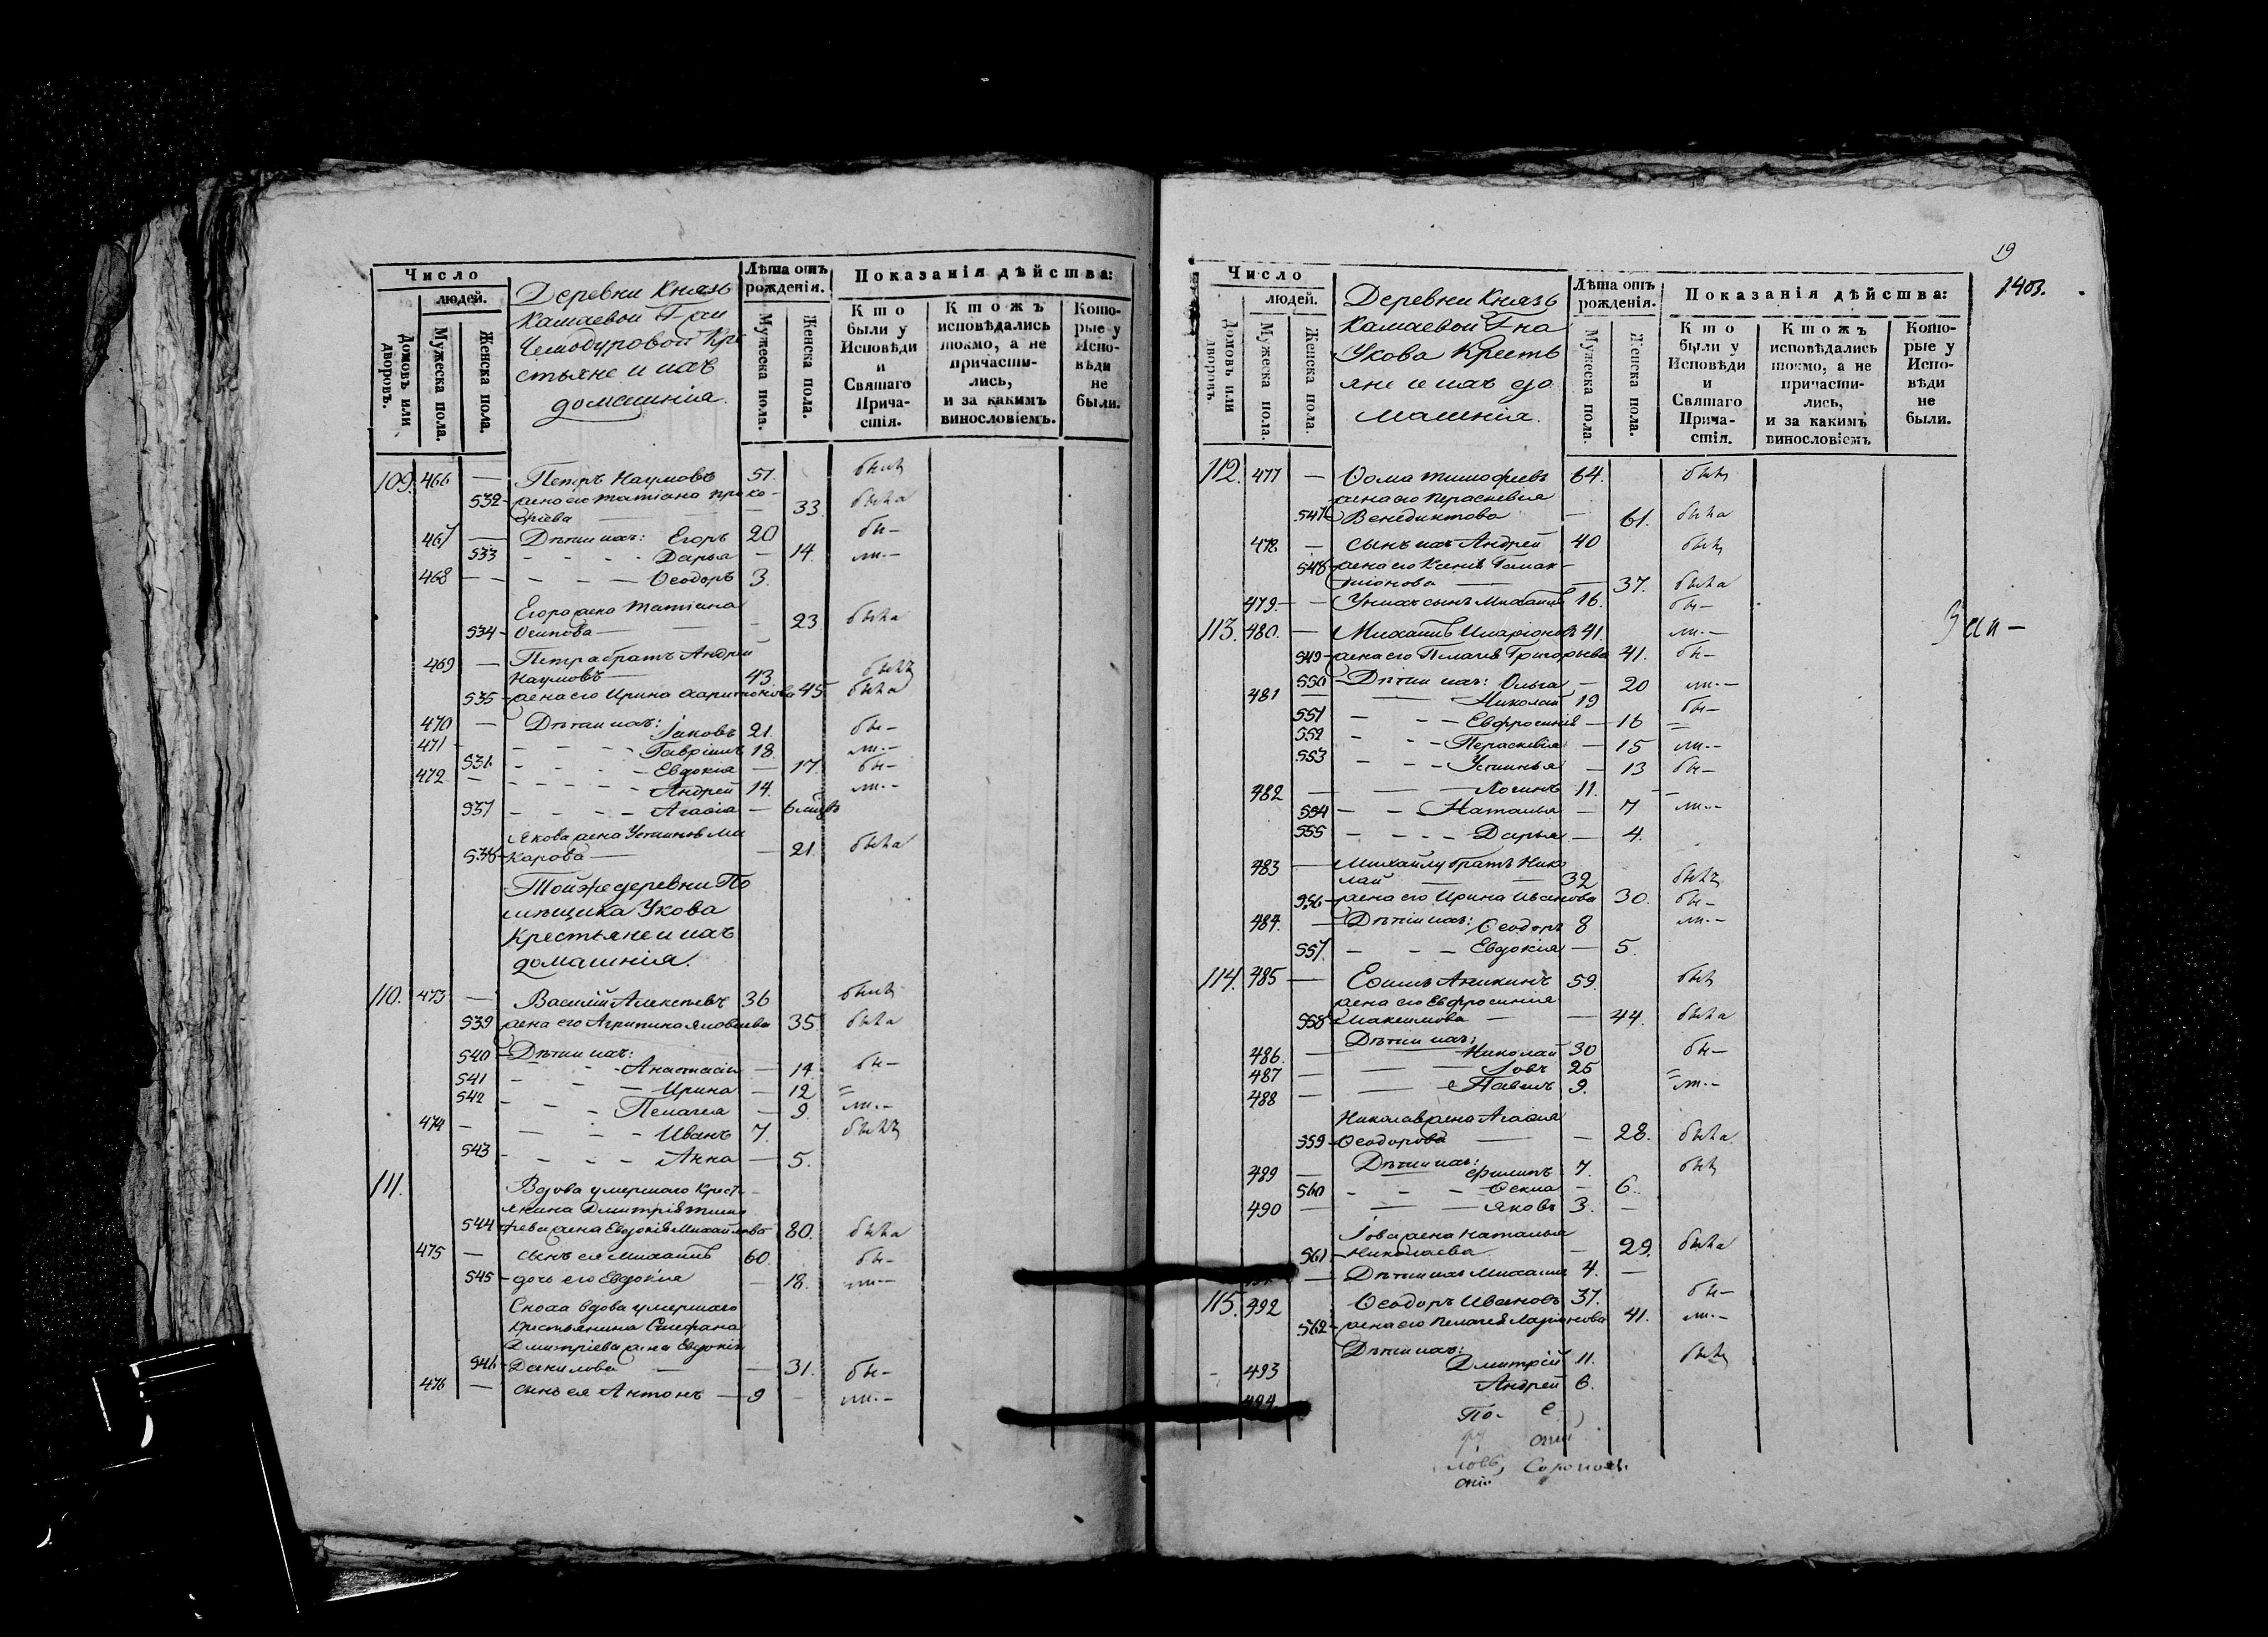 Число
людей.
Домовъ или дворовъ.
Мужеска пола.
Женска пола.
Деревни Князь
Камаевой Г-жи
Крестьяне и ихъ
домашнія.
Лѣта отъ рожденія.
Мужеска пола.
Женска пола.
Показанія дѣйства:
Кто были у Исповѣди и Святаго Причастія.
Ктожъ исповѣдались токмо, а не причастились, и за какимъ винословіемъ.
Которые у Исповѣди не были.
109. 466 — Петръ Наумовъ 51. былъ
532 жена его Татіана Проко-
фіева — 33. была
467 — Дѣти ихъ: Егоръ 20 бы—
533 - - - Дарья — 14. ли.—
468 — - - — Ѳеодоръ 3.
Егора жена Татіана
534 Осипова — 23 была
469 — Петра братъ Андрей
Наумовъ — 43 былъ
535 жена его Ирина Харитонова 45. была
470 — Дѣти ихъ: Іаковъ 21. бы—
471 - - - Гавріилъ 18. ли.—
536 - - - Евдокія — 17. бы—
472 — - - - Андрей 14. ли.—
537 - - - Агафія — 6 мцвъ
Якова жена Устинія Ма
538 карова — 21. была
Тойже деревни По
мѣщика Укова
Крестьяне и ихъ
домашнія.
110. 473 — Василій Алексѣевъ 36 былъ
539 жена его Агрипина Яковлева 35. была
540 Дѣти ихъ:
- - Анастасія — 14. бы—
541 - - — Ирина — 12 =
542 - - - Пелагея — 9. ли.—
474 — - - Иванъ 7. былъ
543 - - - Анна — 5.
111. Вдова умершаго Крест-
янина Дмитрія Тимо
544 феева жена Евдокія Михайлова 80. была
475 — сынъ ея Михаилъ 60. бы—
545 дочь его Евдокія — 18. ли.—
Сноха вдова умершаго
Крестьянина Стефана
Дмитріева жена Евдокія
546 Данилова — 31. бы—
476 — сынъ ея Антонъ — 9 — ли.—
19
1403.
Число
людей.
Домовъ или дворовъ.
Мужеска пола.
Женска пола.
Деревни Князь
Камаевой Г-на
Укова Кресть
яне и ихъ до
машнія.
Лѣта отъ рожденія.
Мужеска пола.
Женска пола.
Показанія дѣйства:
Кто были у Исповѣди и Святаго Причастія.
Ктожъ исповѣдались токмо, а не причастились, и за какимъ винословіемъ
Которые у Исповѣди не были.
112. 477 — Ѳома Тимофеевъ 64. былъ
жена его Параскевія
547 Венедиктова — 61. была
478 — сынъ ихъ Андрей 40 былъ
548 жена его Ксенія
— 37. была
479. — У нихъ сынъ Михаилъ 16. бы—
113. 480. — Михаилъ Иларіоновъ 41. ли.—
549 жена его Пелагея Григорьева 41. бы—
550 Дѣти ихъ: Ольга — 20 ли.—
481 — — Николай 19 бы—
551 — - - Евфросинія — 16 =
552 - - - Параскевія — 15 ли.—
553 - - - Устинья — 13 бы—
482 — — Логинъ 11. —
554 — - Наталья — 7 ли.—
555 — - - Дарья — 4.
483 — Михайлу братъ Нико
лай — 32 былъ
556 жена его Ирина Иванова 30. бы—
484. — Дѣти ихъ: Ѳеодоръ 8 ли.—
557 — - - Евдокія — 5.
114. 485 — Ефимъ Аникинъ 59. былъ
жена его Евфросинія
558 Максимова — 44. была
Дѣти ихъ:
486. — Николай 30 бы—
487 — — Іовъ 25 =
488 — — Павелъ 9. ли.—
Николая жена Агафія
559 Ѳеодорова — 28. была
489 — Дѣти ихъ: Филипъ 7. былъ
560 - - - Ѳекла — 6.
490 — — — Яковъ 3. —
Іова жена Наталья
561 Николаева — 29. была
— Дѣти ихъ Михаилъ 4. —
115. 492 Ѳеодоръ Ивановъ 37. бы—
562 жена его Пелагея Ларіонова 41. ли.—
Дѣти ихъ:
493 Дмитрій 11. былъ
494 Андрей 6.